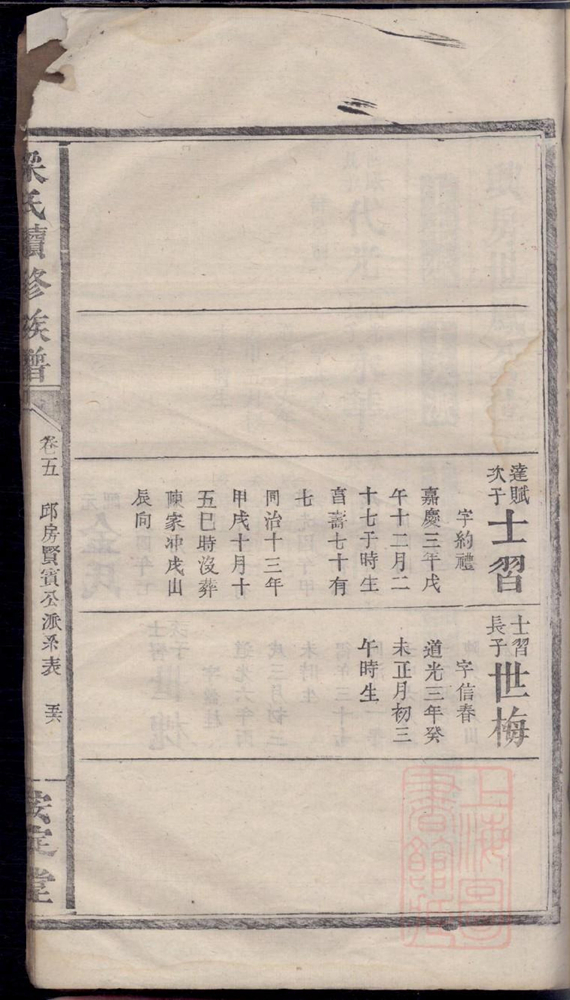 達賦
次子
士習
字約禮
嘉慶三年戊
午十二月二
十七子時生
享壽七十有
七
同治十三年
甲戌十月十
五巳時沒葬
陳家冲戌山
辰向
士習
長子
世梅
字信春
道光三年癸
未正月初三
午時生
梁氏續修族譜
卷五
邱房賢賓公派系表
安定堂
上海圖書館藏